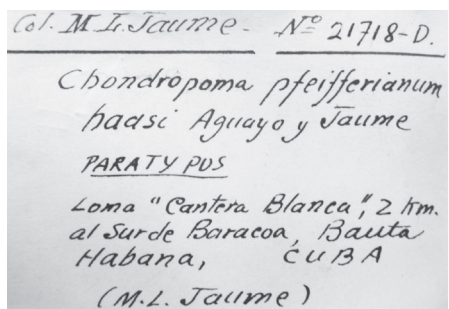 Col. M L. Jaume. Nº 21718-D.
Chondropoma pfeifferianum
haasi Aguayo y Jaume
PARATYPUS
Loma "Cantera Blanca", 2 Km.
al Sur de Baracoa, Bauta
Habana, CUBA
(M.L. Jaume)